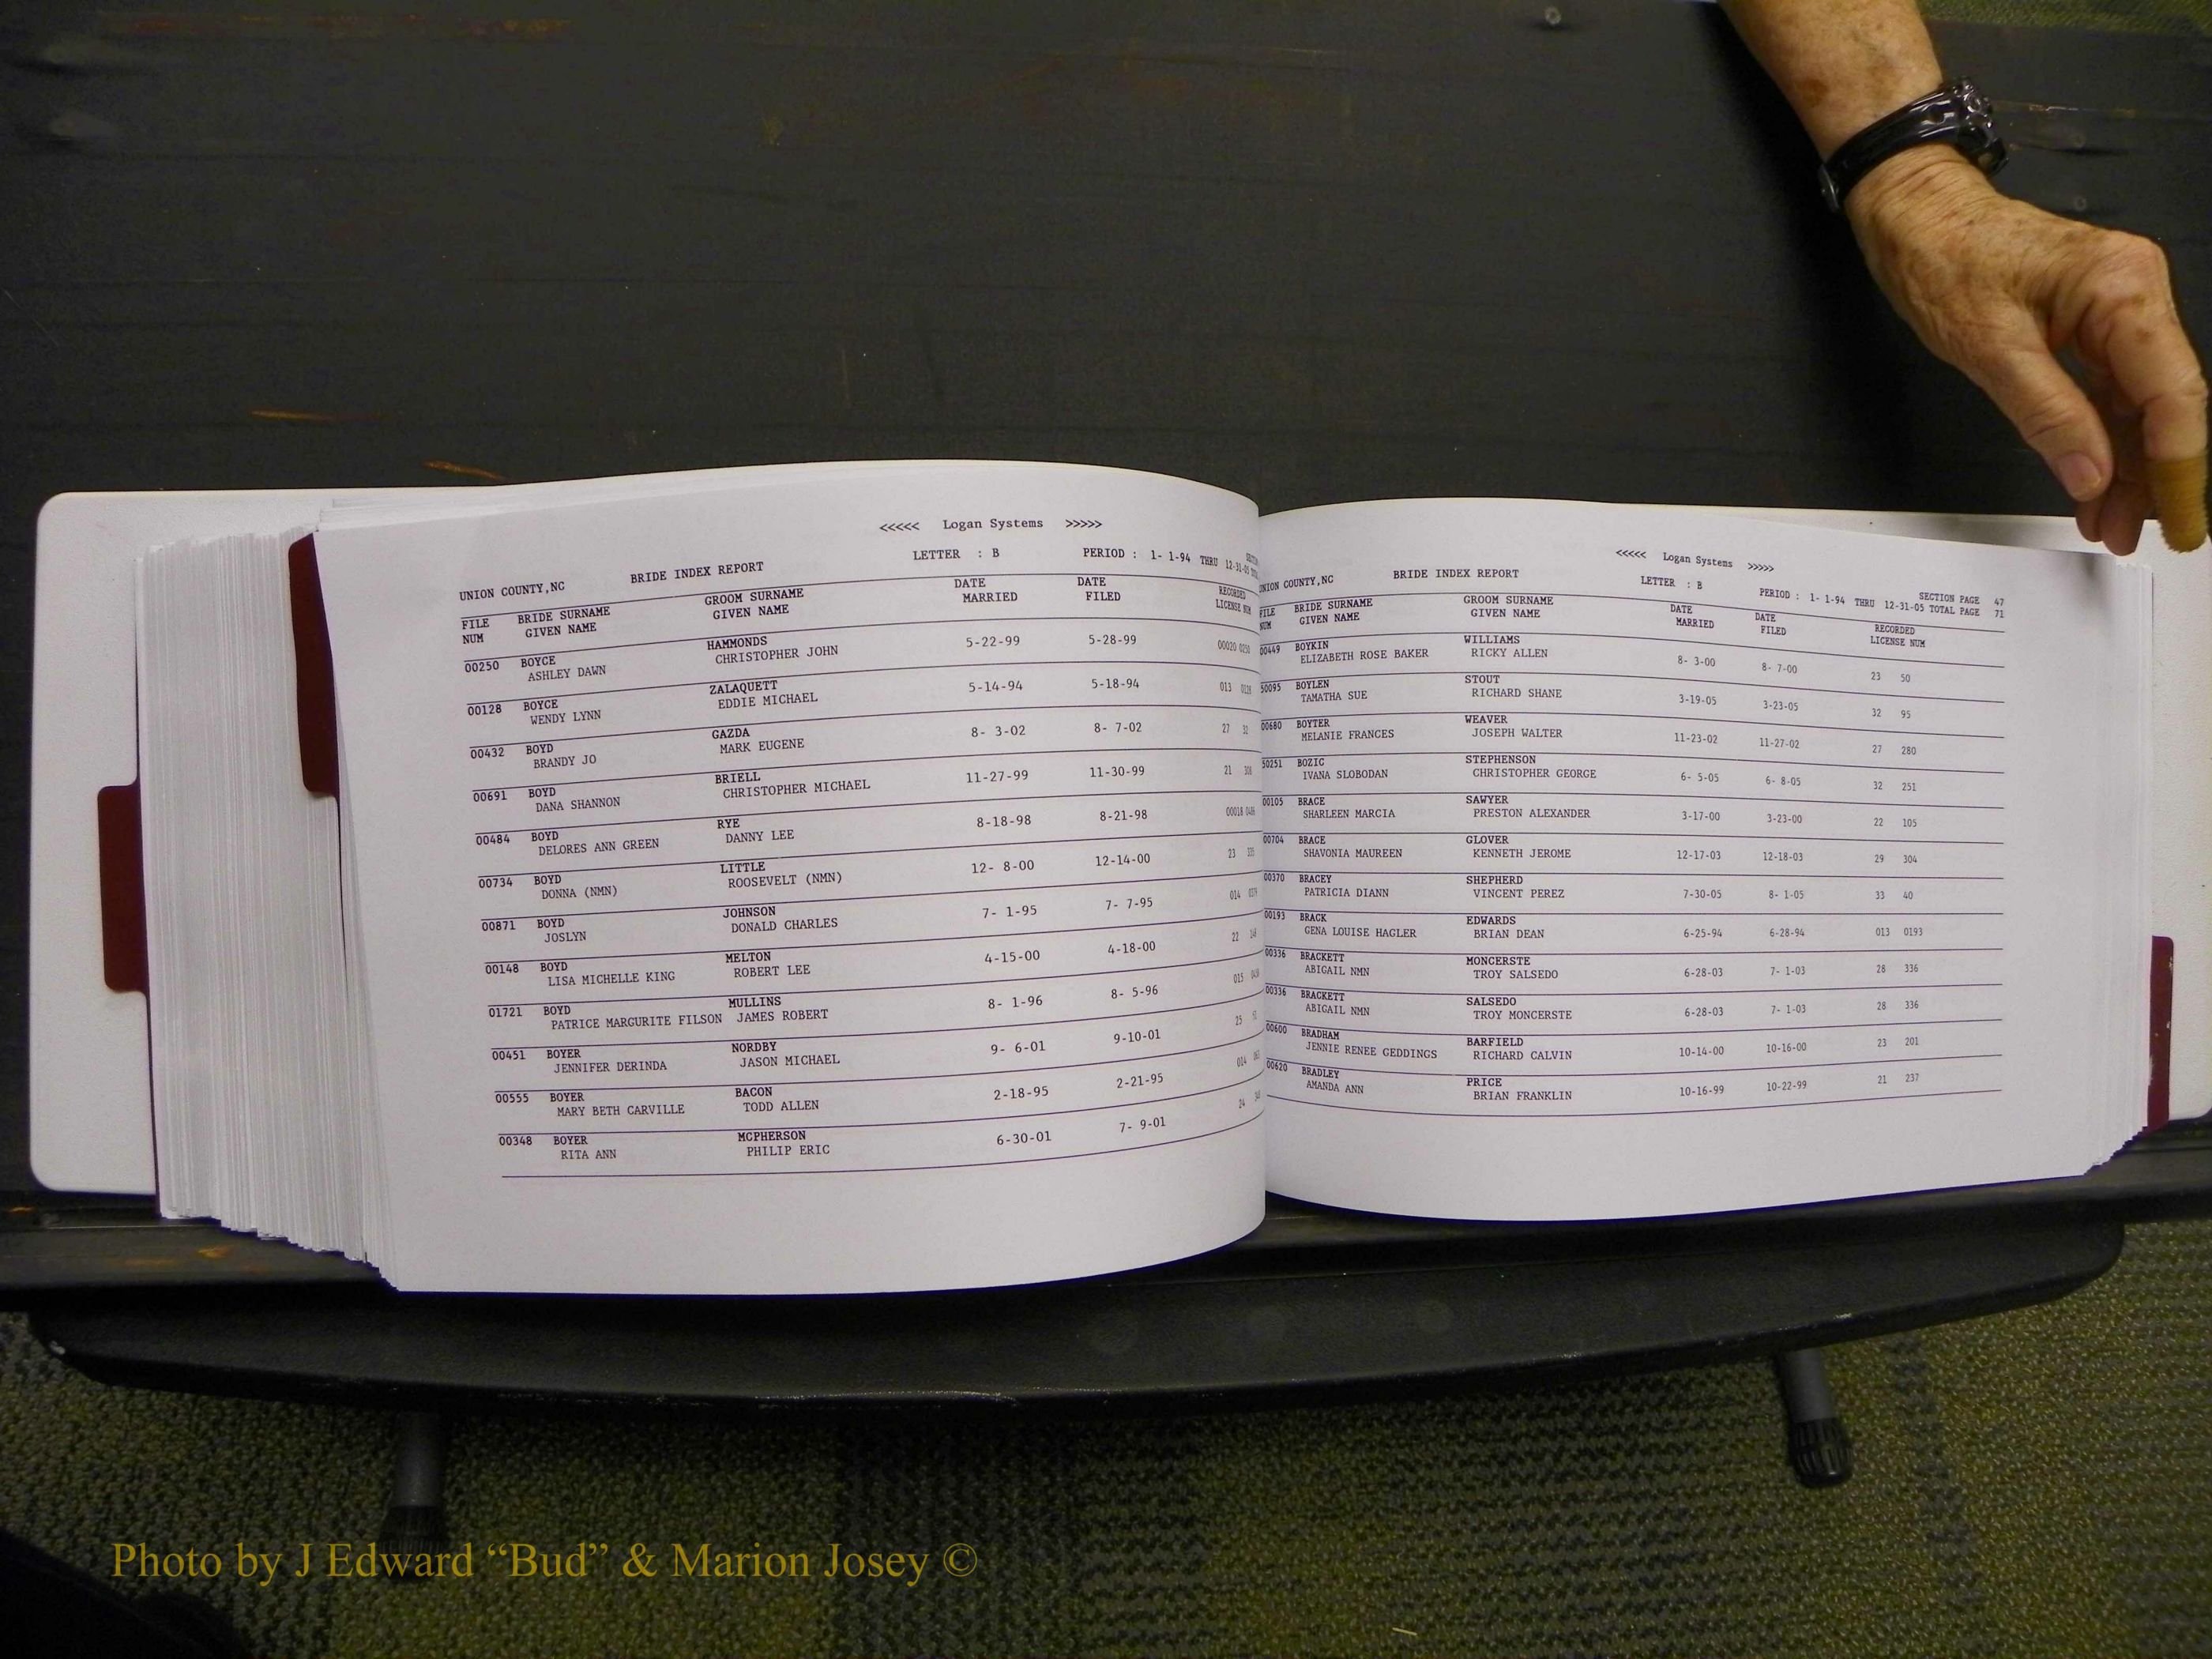 <<<<< Logan Systems >>>>>
UNION COUNTY,NC BRIDE INDEX REPORT LETTER : B PERIOD : 1- 1-94 THRU 12-31-05
FILE BRIDE SURNAME GROOM SURNAME DATE DATE RECORDED
NUM GIVEN NAME GIVEN NAME MARRIED FILED LICENSE NUM
00250 BOYCE HAMMONDS 5-22-99 5-28-99 00020 0250
ASHLEY DAWN CHRISTOPHER JOHN
00128 BOYCE ZALAQUETT 5-14-94 5-18-94 013 0128
WENDY LYNN EDDIE MICHAEL
00432 BOYD GAZDA 8- 3-02 8- 7-02 27
BRANDY JO MARK EUGENE
00691 BOYD BRIELL 11-27-99 11-30-99 21
DANA SHANNON CHRISTOPHER MICHAEL
00484 BOYD RYE 8-18-98 8-21-98 00018
DELORES ANN GREEN DANNY LEE
00734 BOYD LITTLE 12- 8-00 12-14-00 23
DONNA (NMN) ROOSEVELT (NMN)
00871 BOYD JOHNSON 7- 1-95 7- 7-95 014
JOSLYN DONALD CHARLES
00148 BOYD MELTON 4-15-00 4-18-00 22
LISA MICHELLE KING ROBERT LEE
01721 BOYD MULLINS 8- 1-96 8- 5-96 015
PATRICE MARGURITE FILSON JAMES ROBERT
00451 BOYER NORDBY 9- 6-01 9-10-01 25
JENNIFER DERINDA JASON MICHAEL
00555 BOYER BACON 2-18-95 2-21-95 014
MARY BETH CARVILLE TODD ALLEN
00348 BOYER MCPHERSON 6-30-01 7- 9-01 24
RITA ANN PHILIP ERIC
<<<<< Logan Systems >>>>>
SECTION PAGE 47
UNION COUNTY,NC BRIDE INDEX REPORT LETTER : B PERIOD : 1- 1-94 THRU 12-31-05 TOTAL PAGE 71
FILE BRIDE SURNAME GROOM SURNAME DATE DATE RECORDED
NUM GIVEN NAME GIVEN NAME MARRIED FILED LICENSE NUM
00449 BOYKIN WILLIAMS 8- 3-00 8- 7-00 23 50
ELIZABETH ROSE BAKER RICKY ALLEN
50095 BOYLEN STOUT 3-19-05 3-23-05 32 95
TAMATHA SUE RICHARD SHANE
00680 BOYTER WEAVER 11-23-02 11-27-02 27 280
MELANIE FRANCES JOSEPH WALTER
50251 BOZIC STEPHENSON 6- 5-05 6- 8-05 32 251
IVANA SLOBODAN CHRISTOPHER GEORGE
00105 BRACE SAWYER 3-17-00 3-23-00 22 105
SHARLEEN MARCIA PRESTON ALEXANDER
00704 BRACE GLOVER 12-17-03 12-18-03 29 304
SHAVONIA MAUREEN KENNETH JEROME
00370 BRACEY SHEPHERD 7-30-05 8- 1-05 33 40
PATRICIA DIANN VINCENT PEREZ
00193 BRACK EDWARDS 6-25-94 6-28-94 013 0193
GENA LOUISE HAGLER BRIAN DEAN
00336 BRACKETT MONCERSTE 6-28-03 7- 1-03 28 336
ABIGAIL NMN TROY SALSEDO
00336 BRACKETT SALSEDO 6-28-03 7- 1-03 28 336
ABIGAIL NMN TROY MONCERSTE
00600 BRADHAM BARFIELD 10-14-00 10-16-00 23 201
JENNIE RENEE GEDDINGS RICHARD CALVIN
00620 BRADLEY PRICE 10-16-99 10-22-99 21 237
AMANDA ANN BRIAN FRANKLIN
Photo by J Edward “Bud” & Marion Josey ©